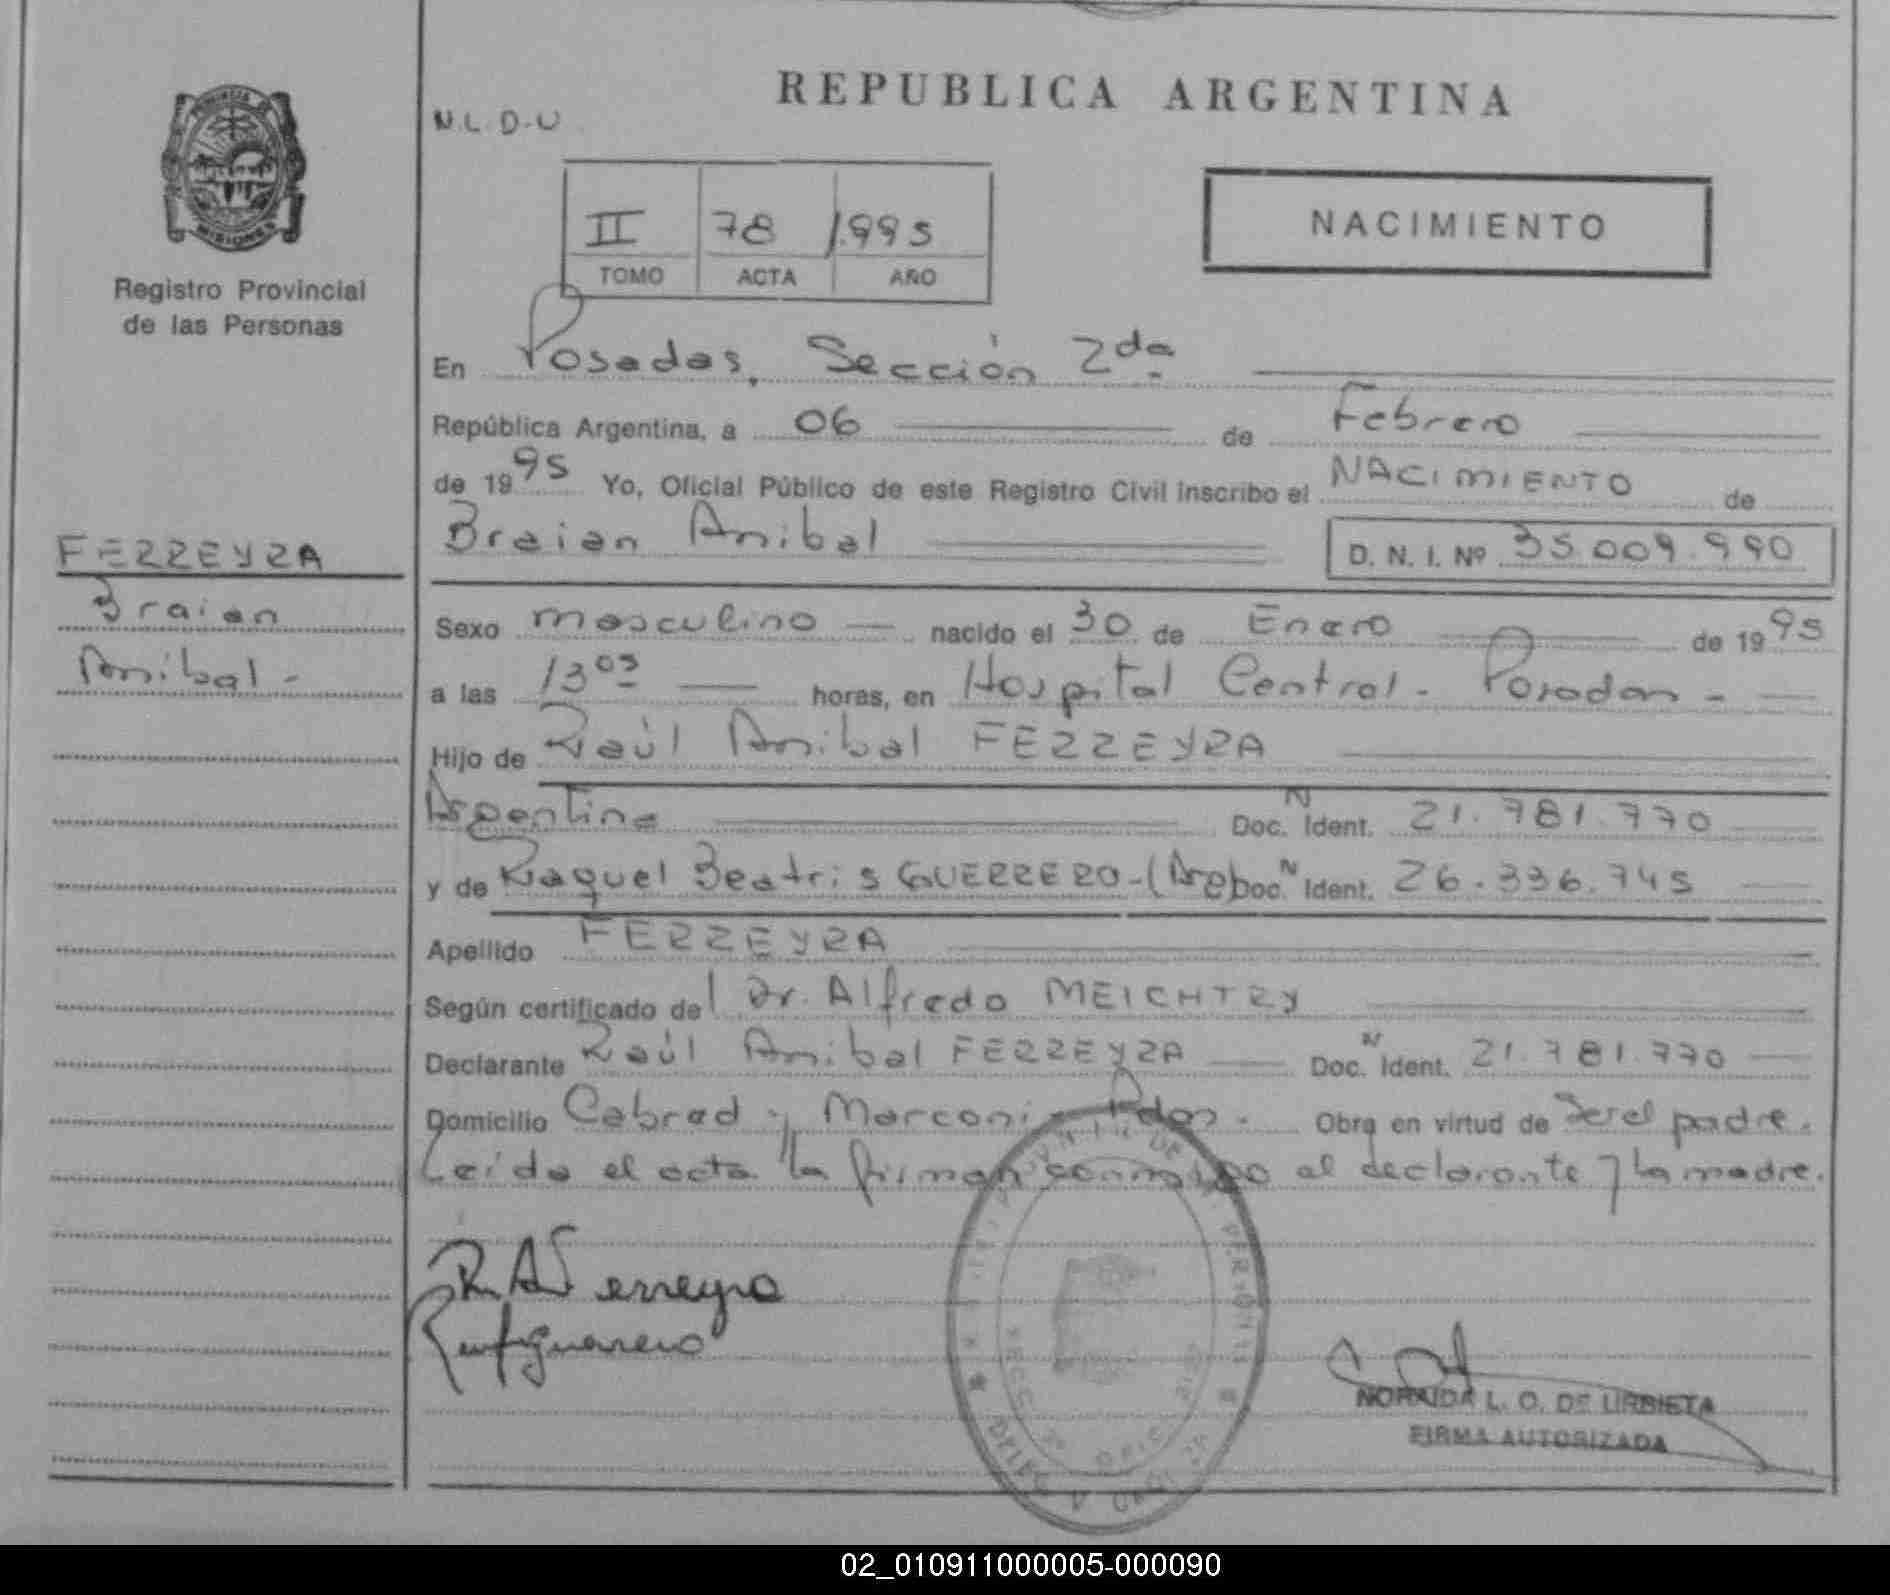 REPUBLICA ARGENTINA
N.L.D.U
PROVINCIA DE
MISIONES
Registro Provincial
de las Personas
II 78 1995
TOMO ACTA AÑO
NACIMIENTO
En Posadas, Sección 2da
República Argentina, a 06 de Febrero
de 1995 Yo, Oficial Público de este Registro Civil inscribo el NACIMIENTO de
Braian Anibal D. N. I. Nº 35.009.990
FERREYRA
Braian
Anibal.-
Sexo masculino nacido el 30 de Enero de 1995
a las 13 05 horas, en Hospital Central. Posadas -
Hijo de Raúl Anibal FERREYRA
Argentina Doc. N Ident. 21.781.770
y de Raquel Beatris GUERRERO-(Arg) Doc. N Ident. 26.336.745
Apellido FERREYRA
Según certificado del Dr. Alfredo MEICHTRY
Declarante Raúl Anibal FERREYRA Doc. N Ident. 21.781.770
Domicilio Cabred y Marconi - Pdas. Obra en virtud de Ser el padre.
Leída el acta la firman conmigo el declarante y la madre.
R A Ferreyra
guerrero
NORAIDA L. O. DE URBIETA
FIRMA AUTORIZADA
02_010911000005-000090